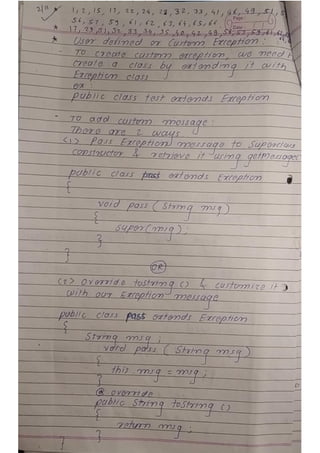 2) 11 * 1, 2, 15, 17, 22, 26, 28, 32, 33, 41, 46, 49, 51,
56, 57, 59, 61, 62, 63, 64, 65, 66
* 17, 29, 31, 32, 33, 34, 35, 40, 42, 49,
* User defined or Custom Exception :
- To create custom exception, we need
create a class by extending it with
Exception class
ex:
public class test extends Exception
- To add custom message :
There are 2 ways
<1> Pass Exception message to Superclass
constructor & retrieve it using getMessage()
public class past extends Exception
{
void pass ( String msg )
{
super(msg);
}
}
OR
<2> Override toString () & customize it
with our Exception message
public class past extends Exception
{
String msg ;
void pass ( String msg )
{
this.msg = msg ;
}
@ override
public String toString ()
{
return msg ;
}
}